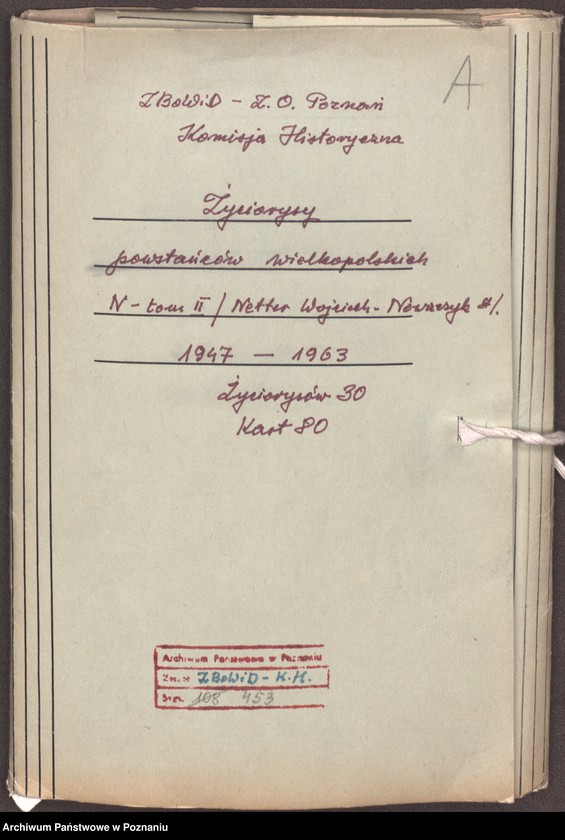 A
ZBoWiD - Z. O. Poznań
Komisja Historyczna
Życiorysy
powstańców wielkopolskich
N - tom II / Netter Wojciech - Nowaczyk St/.
1947 — 1963
Życiorysów 30
Kart 80
Archiwum Państwowe w Poznaniu
Zesp. ZBoWiD - K.H.
Sygn. 108 453
Archiwum Państwowe w Poznaniu